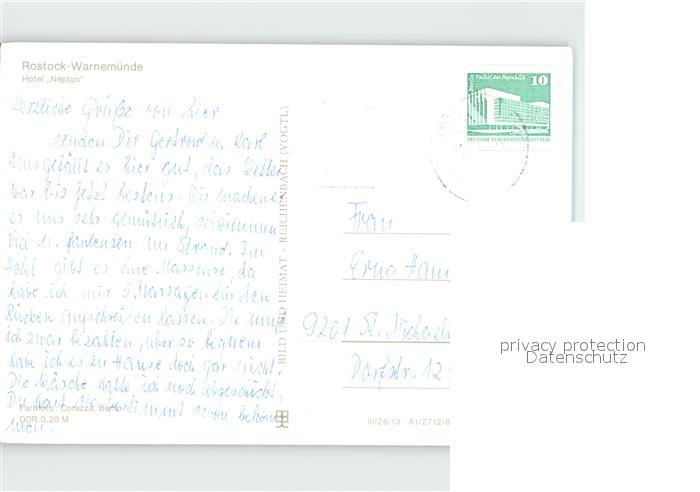 Rostock-Warnemünde
Hotel „Neptun"
Herzliche Grüße von hier
senden Dir Gertrud u. Karl
Uns gefällt es hier gut, das Wetter
war bis jetzt bestens. Wir machen
es uns sehr gemütlich, schwimmen
viel u. faulenzen am Strand. Im
Hotel gibt es eine Masseuse, da
habe ich mir 5 Massagen für den
Rücken anschreiben lassen. Die muß
ich zwar bezahlen, aber so bequem
habe ich es zu Hause doch gar nicht.
Die Wäsche hatte ich noch abgeschickt,
Du hast sie bestimmt schon bekom
men.
Farbfoto: Corazza, Berlin
DDR 0,20 M
BILD UND HEIMAT · REICHENBACH (VOGTL)
Berlin Palast der Republik 10
DEUTSCHE DEMOKRATISCHE REPUBLIK
Frau
Erna Ham
9201 St. Michaelis
Dorfstr. 12
III/26/13 · A1/2712/8
privacy protection
Datenschutz